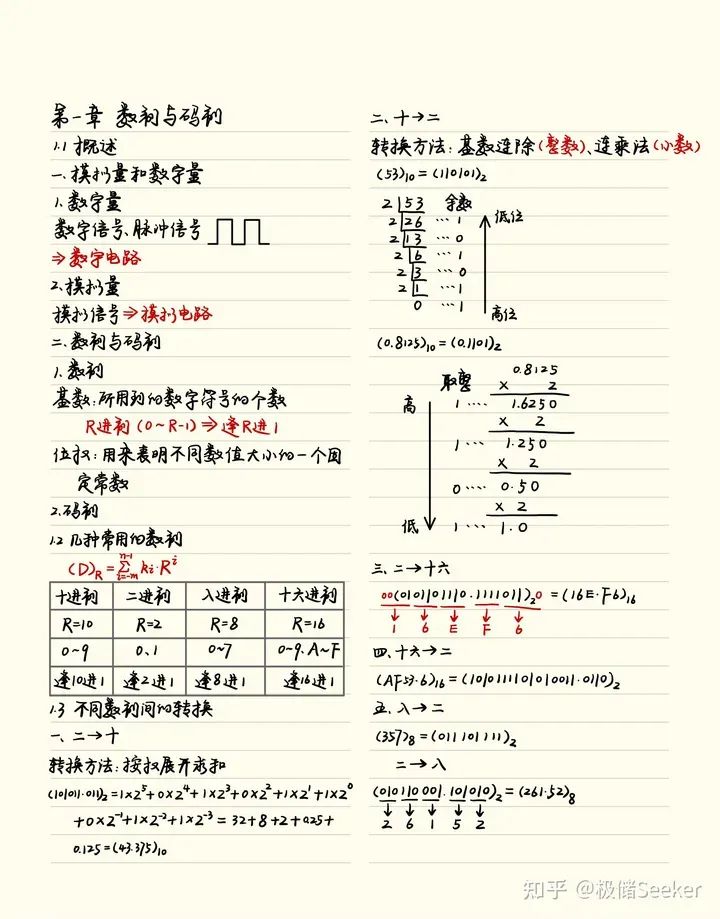 第一章 数制与码制
1.1 概述
一、模拟量和数字量
1.数字量
数字信号、脉冲信号
⇒数字电路
2.模拟量
模拟信号⇒模拟电路
二、数制与码制
1.数制
基数:所用到的数字符号的个数
R进制 (0~R-1)⇒逢R进1
位权:用来表明不同数值大小的一个固
定常数
2.码制
1.2 几种常用的数制
(D)R=∑(i=-m, n-1) ki·R^i
十进制 二进制 八进制 十六进制
R=10 R=2 R=8 R=16
0~9 0.1 0~7 0~9.A~F
逢10进1 逢2进1 逢8进1 逢16进1
1.3 不同数制间的转换
一、二→十
转换方法:按权展开求和
(101011.011)2=1×2^5+0×2^4+1×2^3+0×2^2+1×2^1+1×2^0
+0×2^-1+1×2^-2+1×2^-3=32+8+2+0.25+
0.125=(43.375)10
二、十→二
转换方法:基数连除(整数)、连乘法(小数)
(53)10=(110101)2
2 53 余数
2 26 …1 低位
2 13 …0
2 6 …1
2 3 …0
2 1 …1
0 …1 高位
(0.8125)10=(0.1101)2
取整 0.8125
× 2
高 1 …. 1.6250
× 2
1 … 1.250
× 2
0 …. 0.50
× 2
低 1 … 1.0
三、二→十六
00(0101101110.1111011)20=(16E.F6)16
↓ ↓ ↓ ↓ ↓
1 6 E F 6
四、十六→二
(AF53.6)16=(1010111101010011.0110)2
五、八→二
(357)8=(011101111)2
二→八
(010110001.101010)2=(261.52)8
↓ ↓ ↓ ↓ ↓
2 6 1 5 2
知乎 @极储Seeker